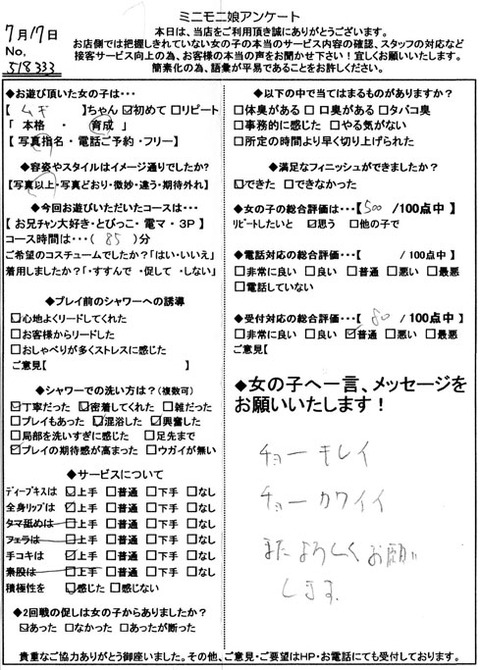 ミニモニ娘アンケート
7月17日
No.
518333
本日は、当店をご利用頂き誠にありがとうございます。
お店側では把握しきれていない女の子の本当のサービス内容の確認、スタッフの対応など
接客サービス向上の為、お客様の本当の声をお聞かせ下さい！宜しくお願いいたします。
簡素化の為、語彙が平易であることをお許しください。
◆お遊び頂いた女の子は・・・
【 ムギ 】ちゃん ☑初めて □リピート
「 本格 ・ 育成 」
【 写真指名・電話ご予約・フリー】
◆容姿やスタイルはイメージ通りでしたか？
【写真以上・写真どおり・微妙・違う・期待外れ】
◆今回お遊びいただいたコースは・・・
【 お兄チャン大好き・とびっこ・電マ・3P 】
コース時間は・・・( 85 )分
ご希望のコスチュームでしたか？「はい・いいえ」
着用しましたか？「・すすんで ・促して ・しない」
◆プレイ前のシャワーへの誘導
□心地よくリードしてくれた
□お客様からリードした
□おしゃべりが多くストレスに感じた
ご意見【 】
◆シャワーでの洗い方は？(複数可)
☑丁寧だった ☑密着してくれた □雑だった
□プレイもあった ☑混浴した ☑興奮した
□局部を洗いすぎに感じた □足先まで
☑プレイの期待感が高まった □ウガイが無い
◆サービスについて
ディープキスは ☑上手 □普通 □下手 □なし
全身リップは ☑上手 □普通 □下手 □なし
タマ舐めは □上手 □普通 □下手 □なし
フェラは □上手 □普通 □下手 □なし
手コキは ☑上手 □普通 □下手 □なし
素股は □上手 □普通 □下手 □なし
積極性を ☑感じた □感じない
◆2回戦の促しは女の子からありましたか？
☑あった □なかった □あったが断った
◆以下の中で当てはまるものがありますか？
□体臭がある □口臭がある □タバコ臭
□事務的に感じた □やる気がない
□所定の時間より早く切り上げられた
◆満足なフィニッシュができましたか？
☑できた □できなかった
◆女の子の総合評価は・・・【 500 /100点中】
リピートしたいと ☑思う □他の子で
◆電話対応の総合評価・・・【 /100点中】
□非常に良い □良い □普通 □悪い □最悪
□電話していない
◆受付対応の総合評価・・・【 80 /100点中】
□非常に良い □良い ☑普通 □悪い □最悪
ご意見【
◆女の子へ一言、メッセージを
お願いいたします！
チョーキレイ
チョーカワイイ
またよろしくお願い
します。
貴重なご協力ありがとう御座いました。その他、ご意見・ご要望はHP・お電話にても受付しております。